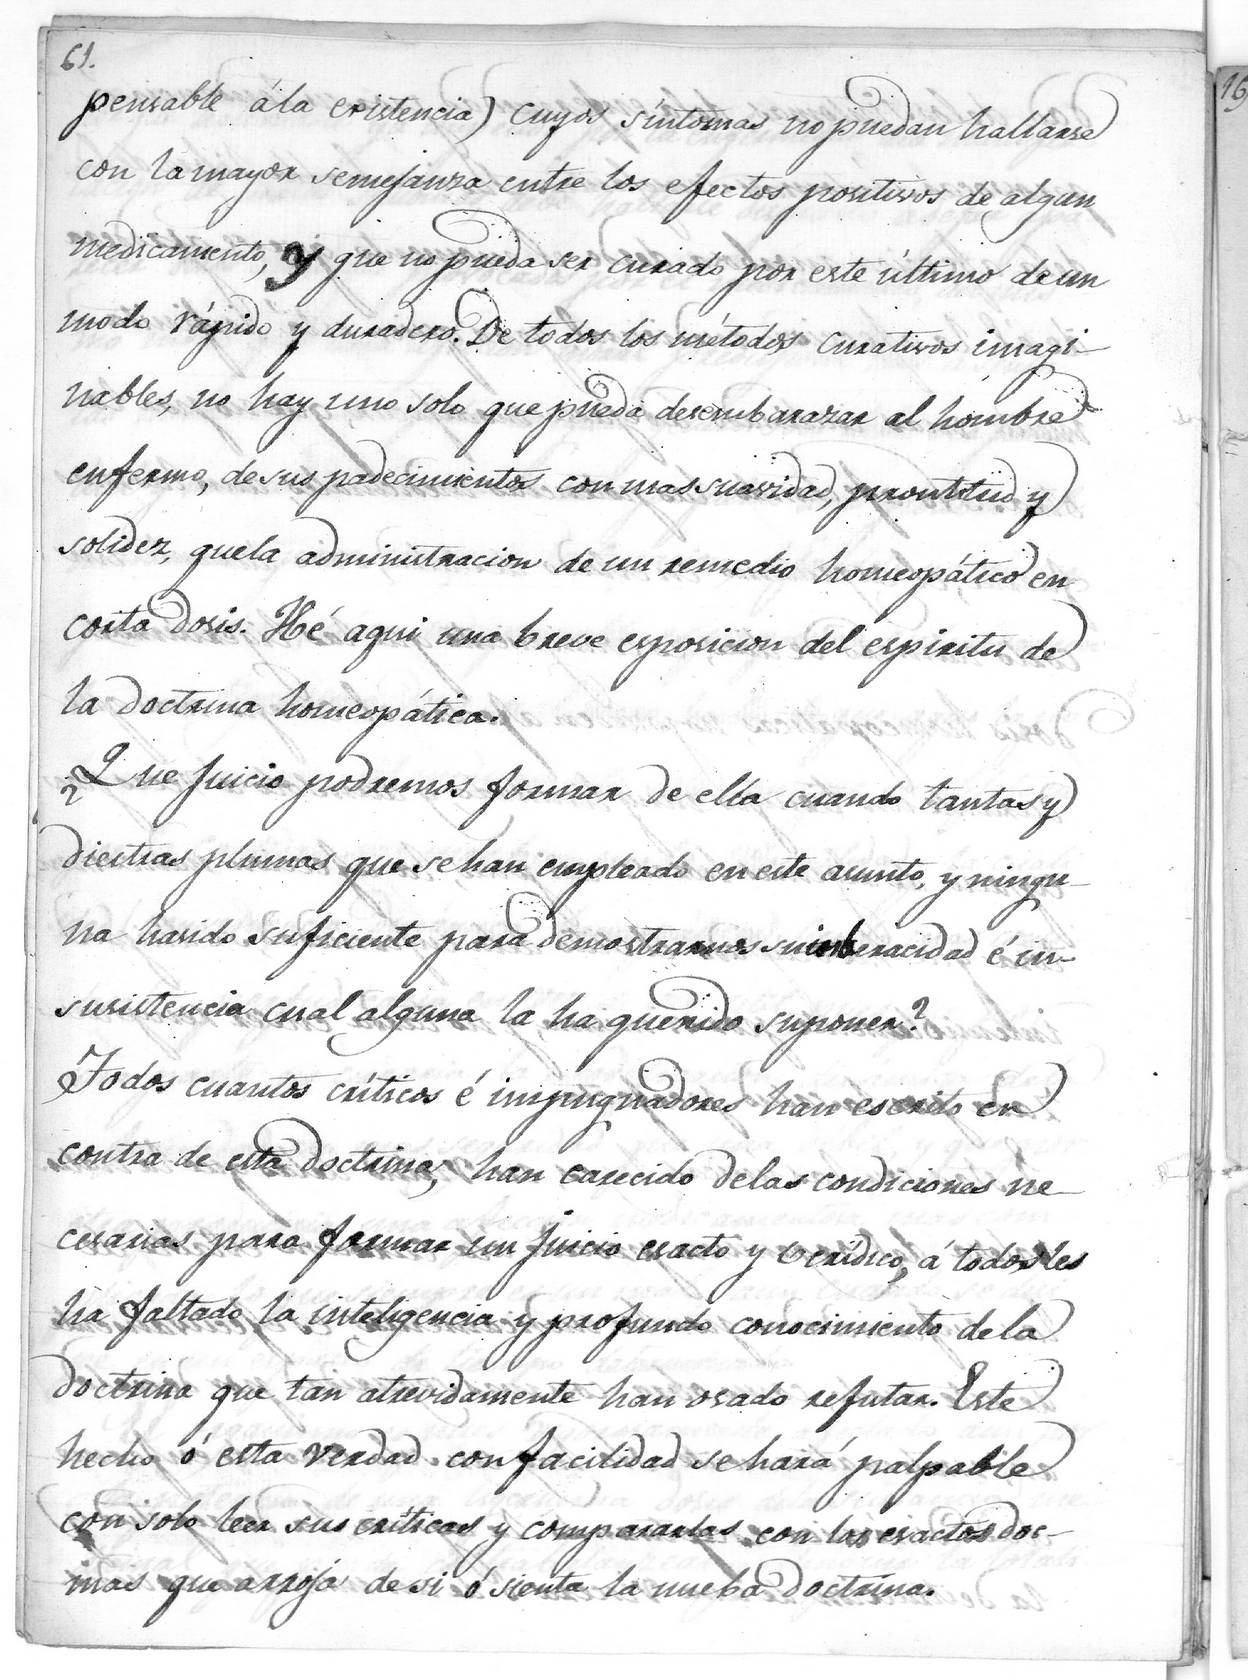 61.
pensable á la existencia) cuyos síntomas no puedan hallarse
con la mayor semejanza entre los efectos positivos de algun
medicamento, y que no pueda ser curado por este último de un
modo rápido y duradero. De todos los métodos curativos imagi-
nables, no hay uno solo que pueda desembarazar al hombre
enfermo, de sus padecimientos con mas suavidad, prontitud y
solidez, que la administracion de un remedio homeopático en
corta dosis. Hé aqui una breve esposicion del espiritu de
la doctrina homeopática.
¿Que Juicio podremos formar de ella cuando tantas y
diestras plumas que se han empleado en este asunto, y ningu-
na ha sido suficiente para demostrarnos su inberacidad é in-
susistencia cual alguna la ha querido suponer?
Todos cuantos críticos é impugnadores han escrito en
contra de esta doctrina, han carecido de las condiciones ne-
cesarias para formar un Juicio esacto y verídico, á todos les
ha faltado la inteligencia y profundo conocimiento de la
doctrina que tan atrevidamente han osado refutar. Este
hecho ó esta verdad con facilidad se hará palpable
con solo leer sus críticas y compararlas con los esactos doc-
mas que arroja de si ó sienta la nueba doctrina.
16